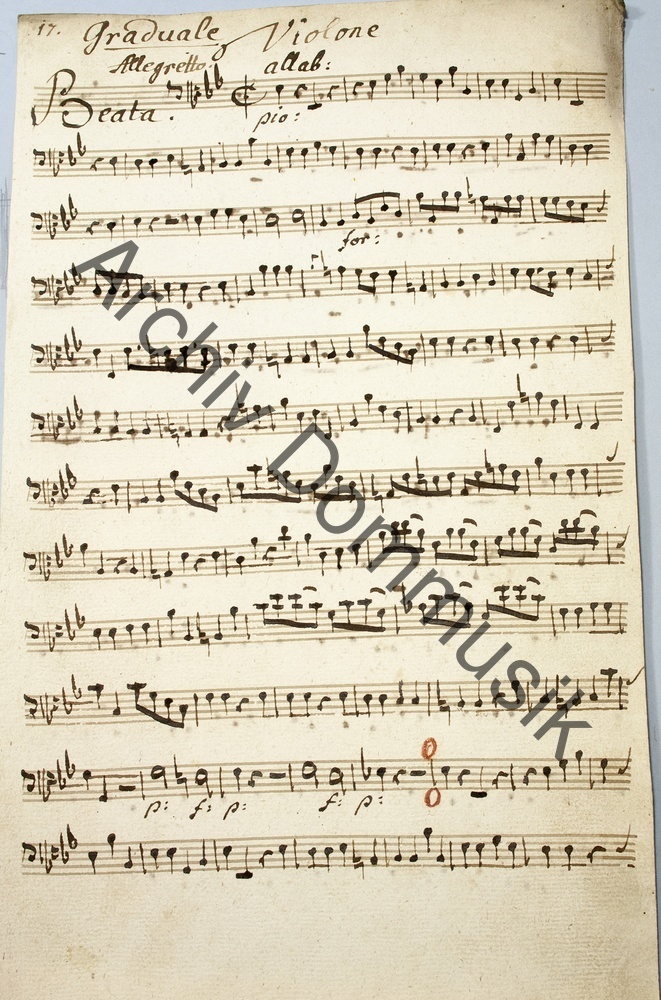 17. Graduale Violone
Allegretto allab:
Beata.
pio:
for:
p: f: p: f: p:
Archiv Dommusik